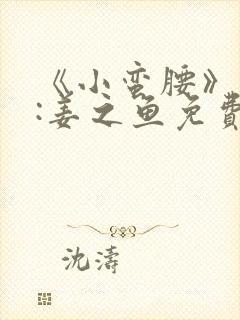 《小蛮腰》
:姜之鱼免費
沈濤